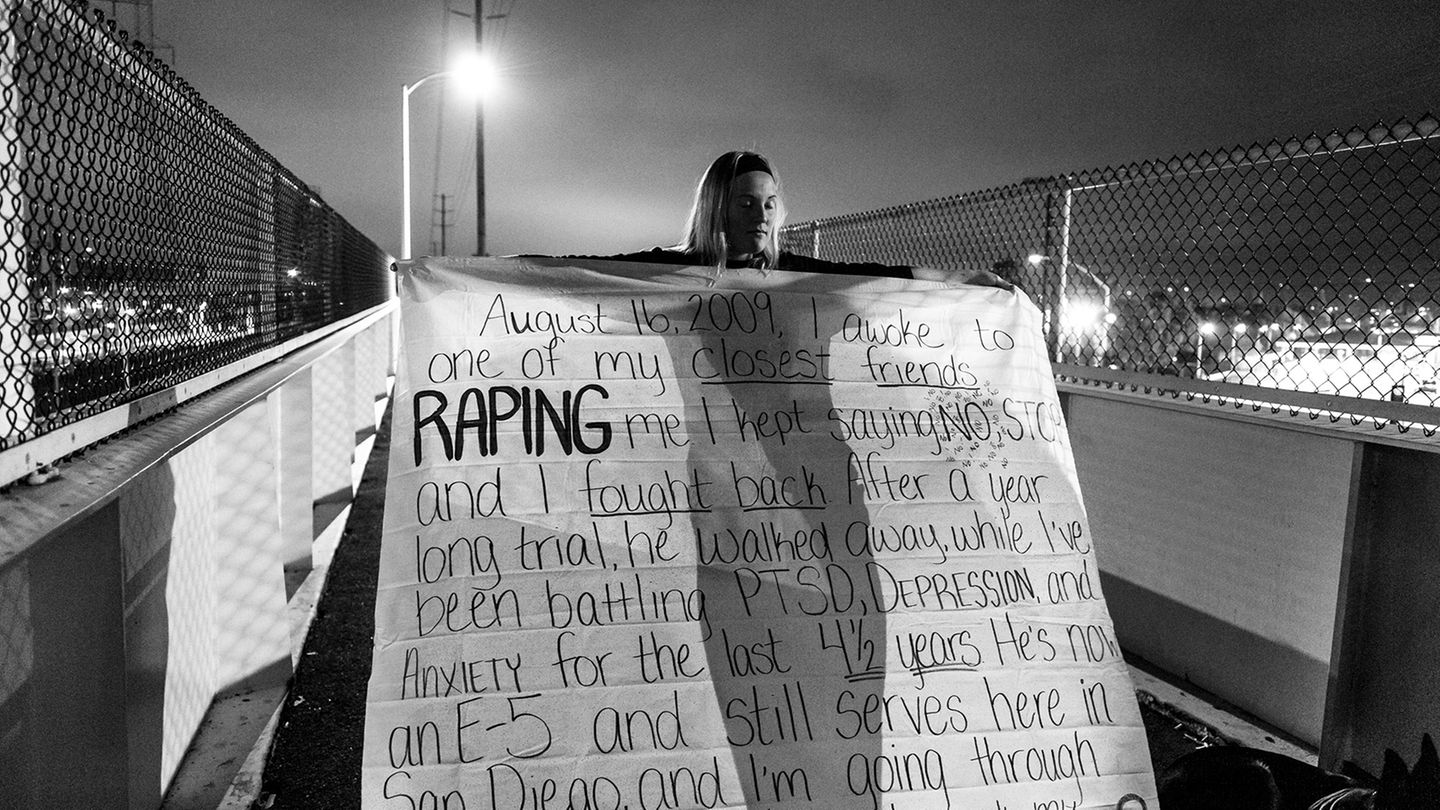 August 16, 2009, I awoke to
one of my closest friends
RAPING me I kept saying NO, STOP
and I fought back After a year
long trial, he walked away, while I've
been battling PTSD, DEPRESSION, and
ANXIETY for the last 4½ years He's now
an E-5 and still serves here in
San Diego, and I'm going through
my